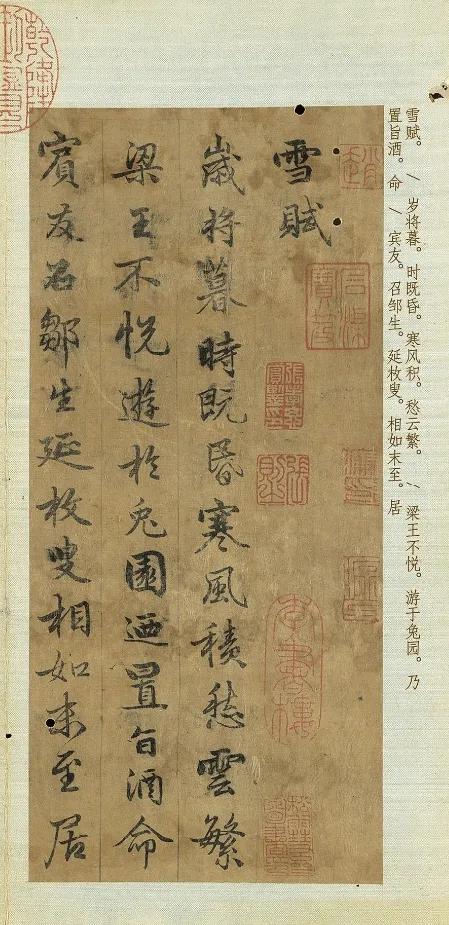 雪赋。 / 岁将暮。时既昏。寒风积。愁云繁。 / 梁王不悦。游于兔园。乃
置旨酒。命 / 宾友。召邹生。延枚叟。相如末至。居
雪賦
歲將暮時既昏寒風積愁雲繁
梁王不悅遊於兔園迺置旨酒命
賓友召鄒生延枚叟相如末至居